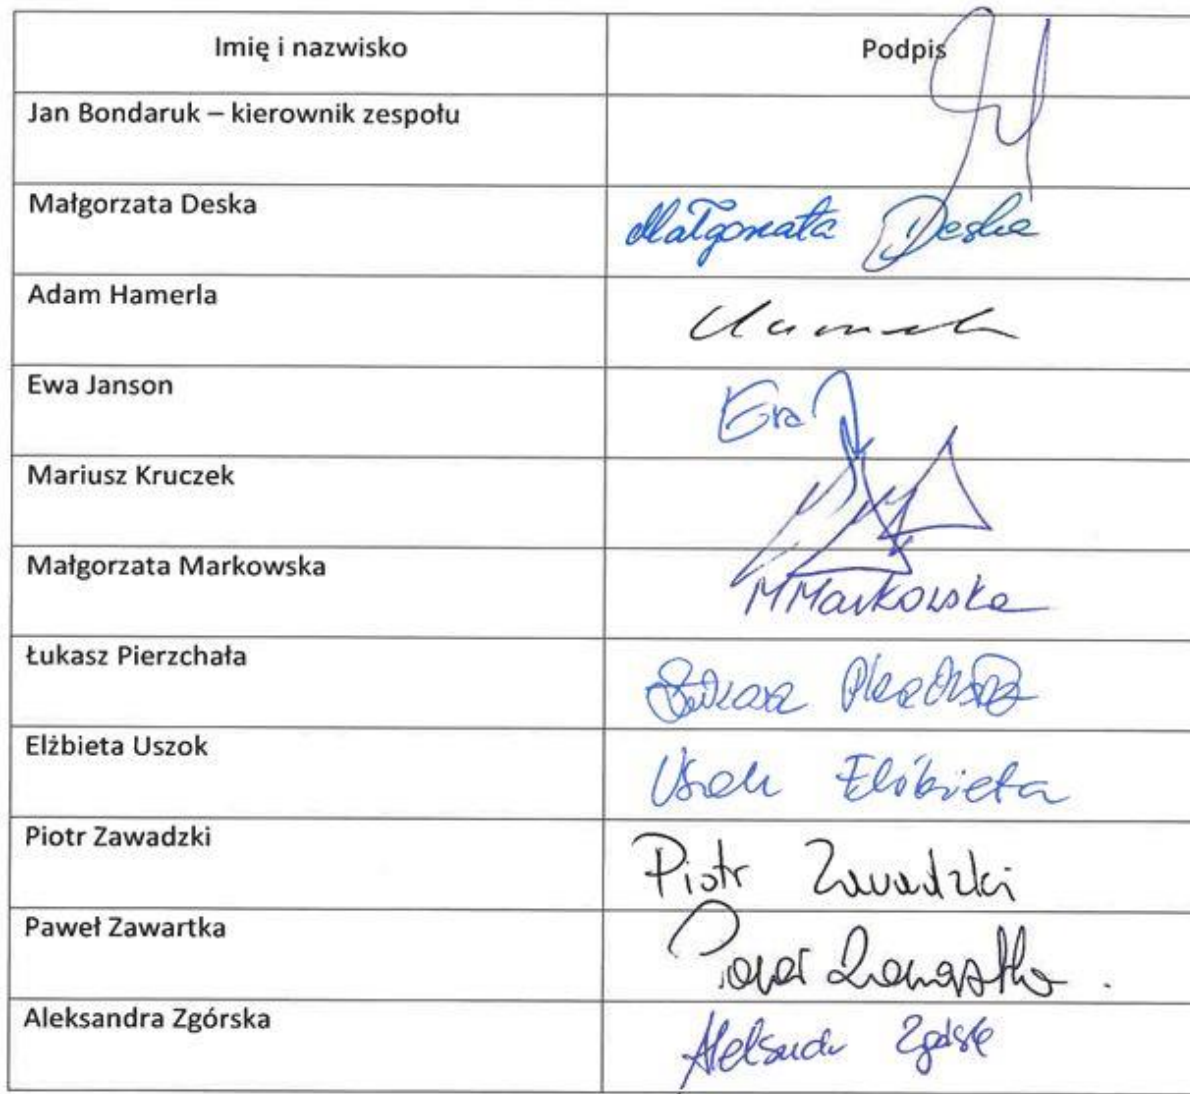 Imię i nazwisko Podpis
Jan Bondaruk – kierownik zespołu
Małgorzata Deska Małgorzata Deska
Adam Hamerla
Ewa Janson Ewa
Mariusz Kruczek
Małgorzata Markowska MMarkowska
Łukasz Pierzchała
Elżbieta Uszok Uszok Elżbieta
Piotr Zawadzki Piotr Zawadzki
Paweł Zawartka Paweł Zawartka
Aleksandra Zgórska